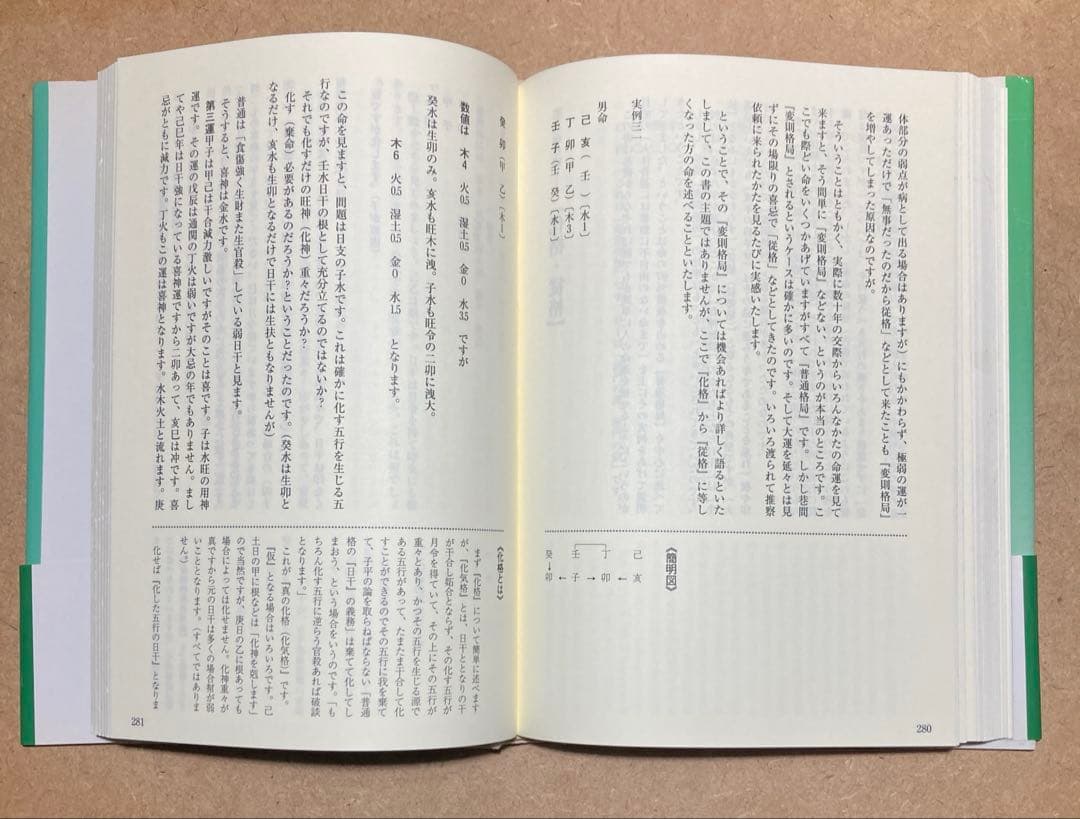 体部分の弱点が病として出る場合はありますが）にもかかわらず、極弱の運が一
運あっただけで「無事だったのだから従格」などとして来たことも『変則格局』
を増やしてしまった原因なのですが。
そういうことはともかく、実際に数十年の交際からいろんなかたの命運を見て
来ますと、そう簡単に『変則格局』などない、というのが本当のところです。こ
こでも際どい命をいくつかあげていますがすべて『普通格局』です。しかし巷間
『変則格局』とされるというケースは確かに多いのです。そして大運を延々とは見
ずにその場限りの喜忌で「従格」などとしてきたのです。いろいろ渡られて推察
依頼に来られたかたを見るたびに実感いたします。
ということで、その『変則格局』については機会あればより詳しく語るといた
しまして、この書の主題ではありませんが、ここで『化格』から『従格』に等し
くなった方の命を述べることといたします。
実例三
男命
己亥（壬）〔水1〕
丁卯（甲乙）〔木3〕
壬子（壬癸）〔水1〕
《簡明図》
己 丁 壬 癸
亥→卯←子→卯
↓
280
癸卯（甲乙）〔木1〕
数値は 木4 火0.5 湿土0.5 金0 水3.5 ですが
癸水は生卯のみ。亥水も旺木に洩。子水も旺令の二卯に洩大。
木6 火0.5 湿土0.5 金0 水1.5 となります。
この命を見ますと、問題は日支の子水です。これは確かに化す五行を生じる五
行なのですが、壬水日干の根として充分立てるのではないか？
それでも化すだけの旺神（化神）重々だろうか？
化す（棄命）必要があるのだろうか？ということだったのです。（癸水は生卯と
なるだけ、亥水も生卯となるだけで日干には生扶ともなりませんが）
普通は「食傷強く生財また生官殺」している弱日干と見ます。
そうすると、喜神は金水です。
第三運甲子は甲己は干合減力激しいですがそのことは喜です。子は水旺の用神
運です。その運の戊辰は通関の丁火は弱いですが大忌の年でもありません。まし
てや己巳年は日干強になっている喜神運ですから二卯あって、亥巳は冲です。喜
忌がともに減力です。丁火もこの運は喜神となります。水木火土と流れます。庚
《化格とは》
まず『化格』について簡単に述べます
が、『化気格』とは、日干ととなりの干
が干合し妬合とならず、その化す五行が
月令を得ていて、その上にその五行が
重々とあり、かつその五行を生じる源で
ある五行があって、たまたま干合して化
すことができるのでその五行に我を棄て
て、子平の論を取らねばならない『普通
格の『日干』の義務』は棄てて化してし
まおう、という場合をいうのです。「も
ちろん化す五行に逆らう官殺あれば破談
となります。」
これが『真の化格（化気格）』です。
『仮』となる場合はいろいろです。己
土日の甲に根などは「化神を剋します」
ので当然ですが、庚日の乙に根あっても
場合によっては化せません。化神重々が
真ですから元の日干は多くの場合頼が弱
いこととなります。（すべてではありま
せん。）
化せば『化した五行の日干』となりま
281